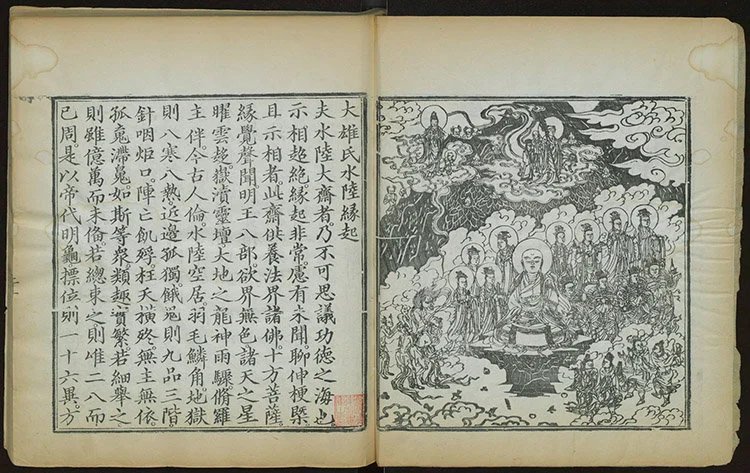 大雄氏水陸緣起
夫水陸大齋者。乃不可思議功德之海也
示相超絕緣起非常。處有未聞聊伸梗槩
且示相者。此齋供養法界諸佛。十方菩薩。
緣覺聲聞明王八部欲界無色諸天之星
曜雲趍嶽瀆靈壇大地之龍神雨驟脩羅
主伴。今古人倫水陸空居。羽毛鱗角地獄
則八寒八熱近邊孤獨。餓鬼則九品三階
針咽炬口。陣亡飢殍枉夭橫終無主無依。
孤魂滯魄。如斯等衆。類趣實繁若細舉之
則雖億萬而未俻若總束之則唯二八而
已周。是以帝代明龜標位則一十六異。方